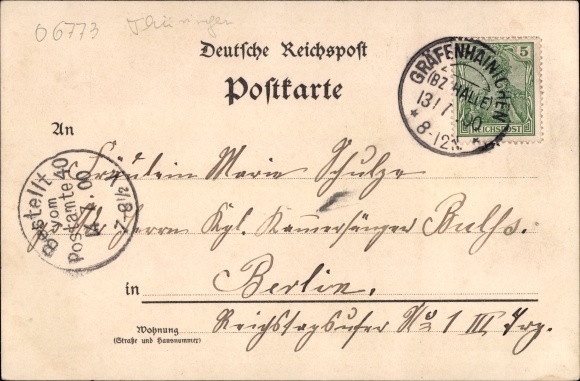 06773 Thüringen
Deutsche Reichspost
Postkarte
5
REICHSPOST
GRÄFENHAINICHEN
(BZ. HALLE)
13/7 00
* 8-12N. *
An
Fräulein Marie Schulze
Herrn Kgl. Kammersänger Bulss.
in Berlin,
Reichstagsufer No 1 III Trp.
Wohnung
(Straße und Hausnummer)
Bestellt
vom
Postamte 40
00
7-8½ V